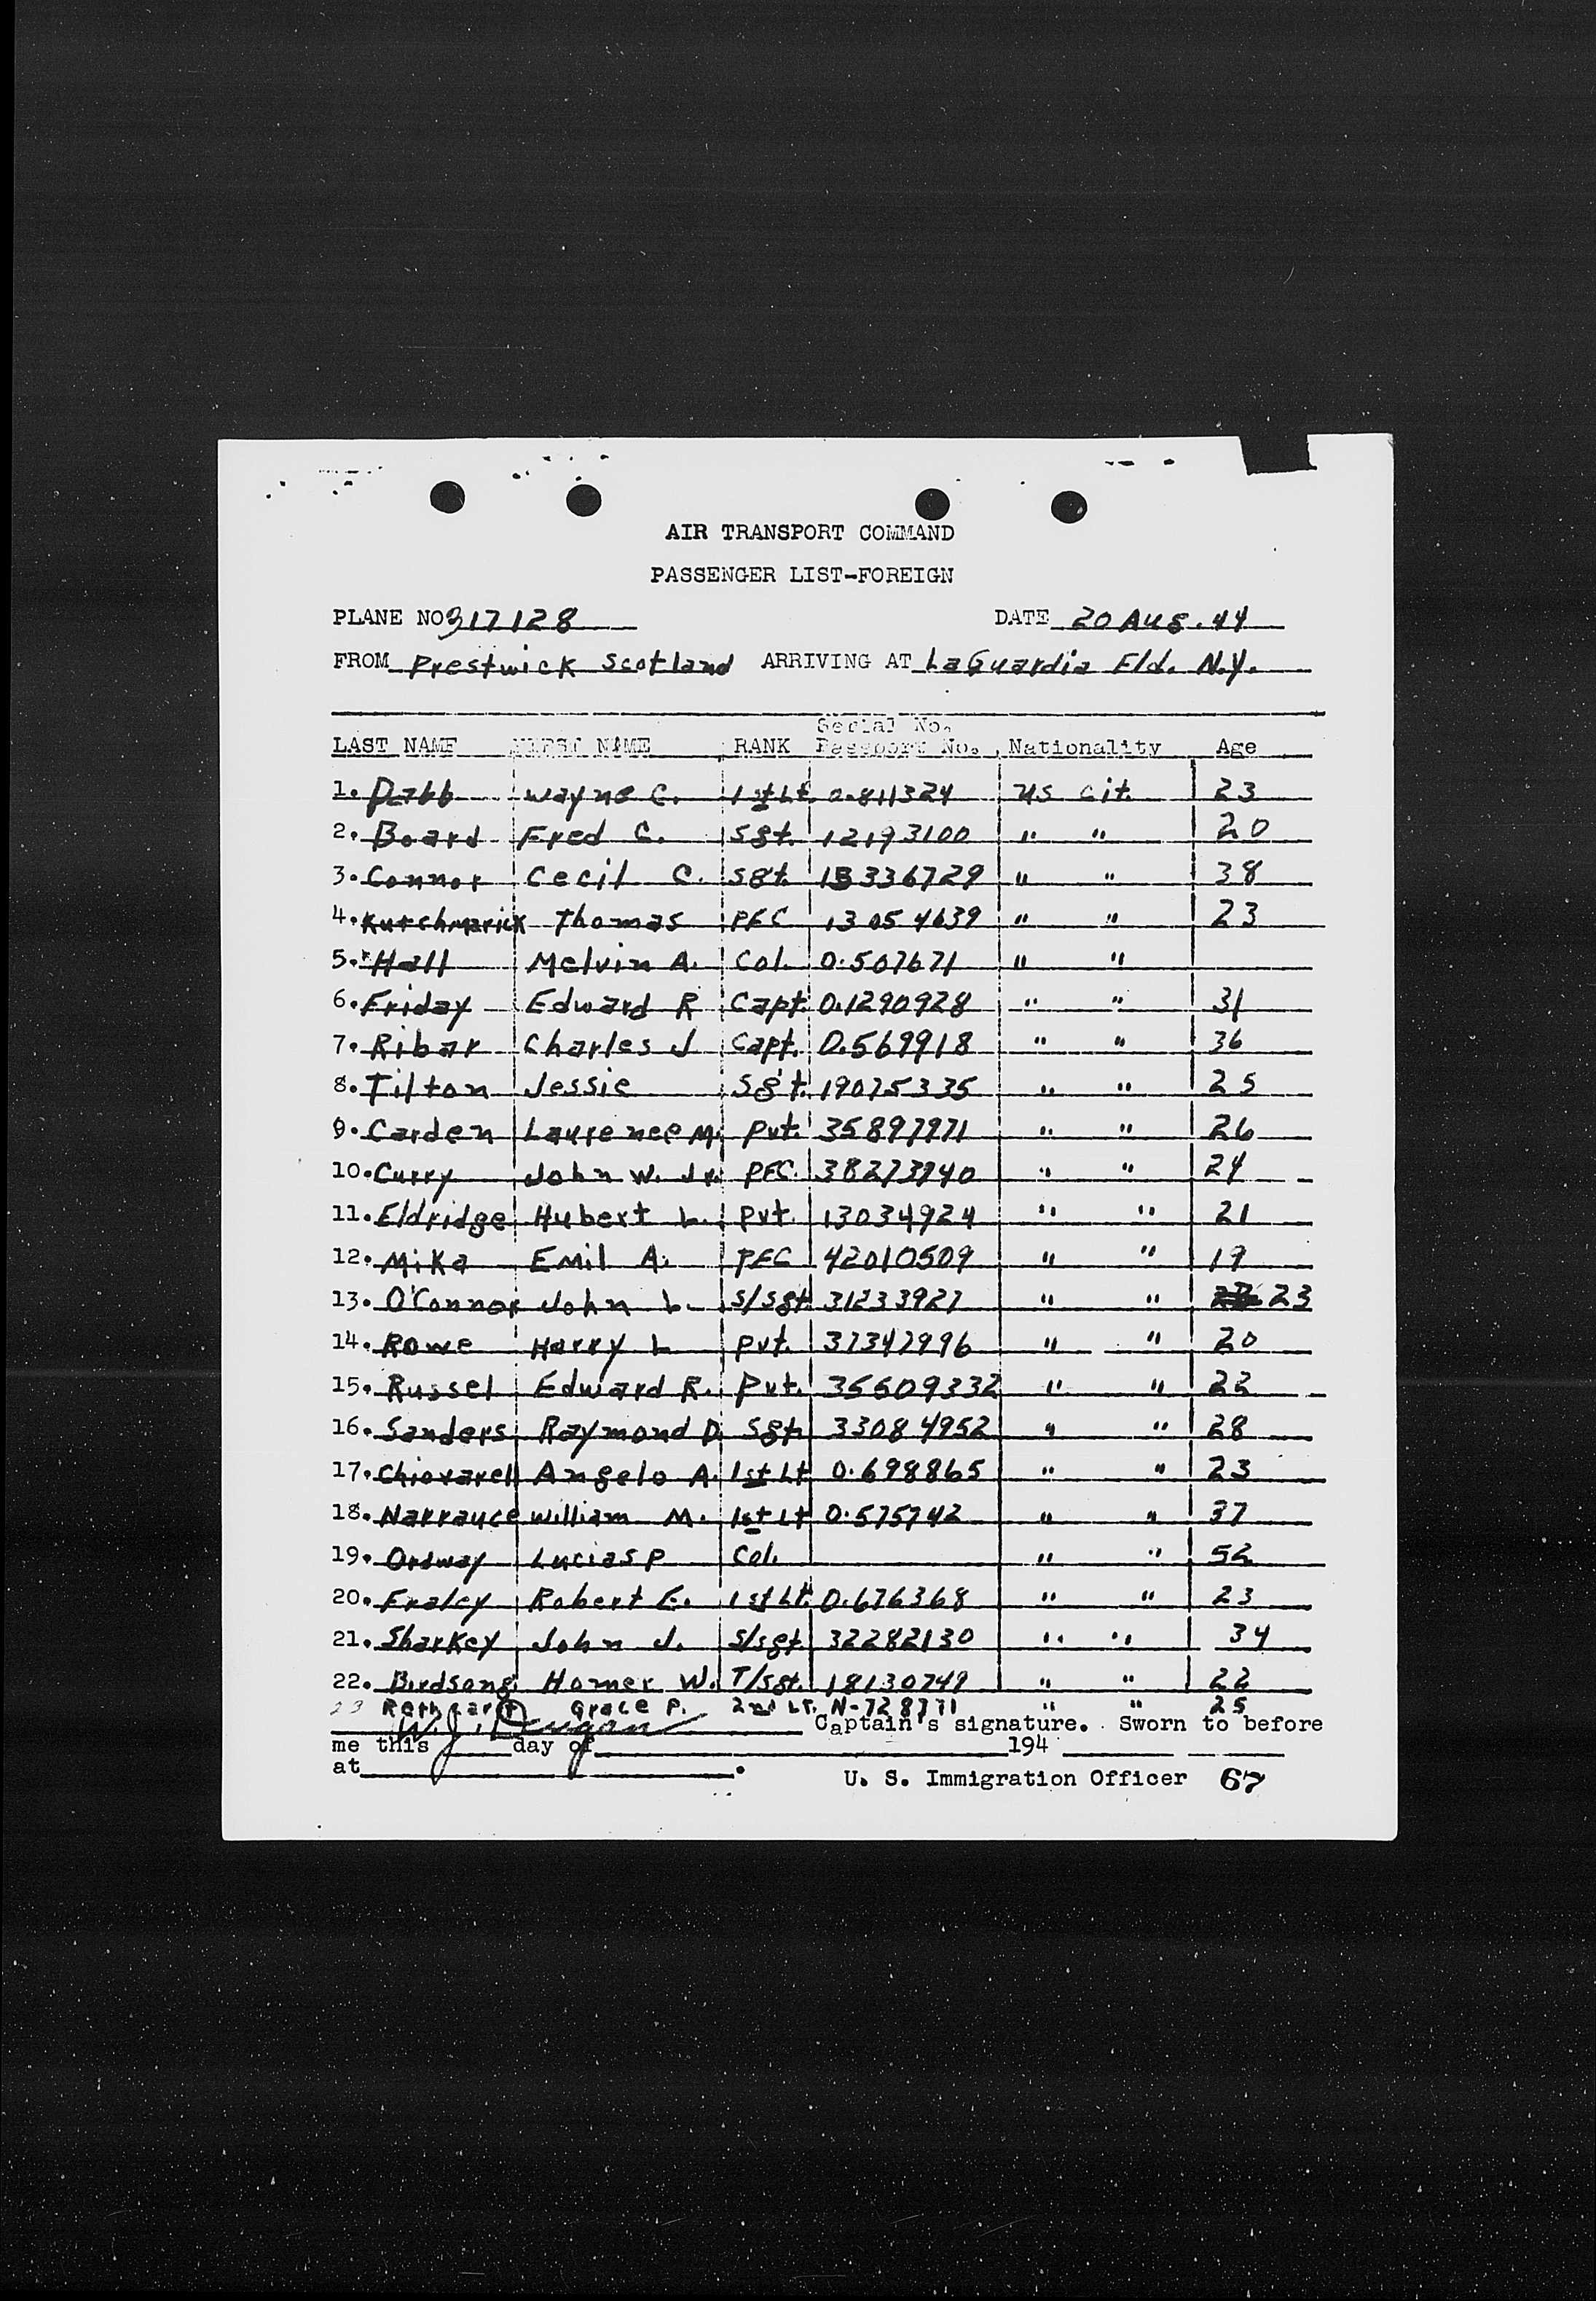 AIR TRANSPORT COMMAND
PASSENGER LIST-FOREIGN
PLANE NO 317128 DATE 20 Aug. 44
FROM Prestwick Scotland ARRIVING AT LaGuardia Fld. N.Y.
Serial No.
LAST NAME FIRST NAME RANK Passport No. Nationality Age
1. Dabb Wayne C. 1st Lt. 0.811324 US cit. 23
2. Board Fred C. Sgt. 12193100 " " 20
3. Connor Cecil C. Sgt. 13336729 " " 38
4. Kutchmarick Thomas PFC 13054639 " " 23
5. Hall Melvin A. Col. 0.507671 " "
6. Friday Edward R Capt. 0.1290928 " " 31
7. Ribar Charles J Capt. 0.569918 " " 36
8. Tilton Jessie Sgt. 19075335 " " 25
9. Carden Laurence M. Pvt. 35897971 " " 26
10. Curry John W. Jr. PFC. 38273940 " " 24
11. Eldridge Hubert L. Pvt. 13034924 " " 21
12. Mika Emil A. PFC 42010509 " " 19
13. O'Connor John L. S/Sgt 31233927 " " 23
14. Rowe Harry L Pvt. 37347996 " " 20
15. Russel Edward R. Pvt. 35509332 " " 22
16. Sanders Raymond D. Sgt. 33084952 " " 28
17. Chiovarell Angelo A. 1st Lt 0.698865 " " 23
18. Narrauce William M. 1st Lt 0.575742 " " 37
19. Ordway Lucias P Col. " " 52
20. Fraley Robert E. 1st Lt. 0.676368 " " 23
21. Sharkey John J. S/Sgt. 32282130 " " 34
22. Birdsong Homer W. T/Sgt. 18130749 " " 22
23 Grace P. 2nd Lt. N-728771 " " 25
W. J. Dugan Captain's signature. Sworn to before
me this day of 194
at .
U. S. Immigration Officer 67